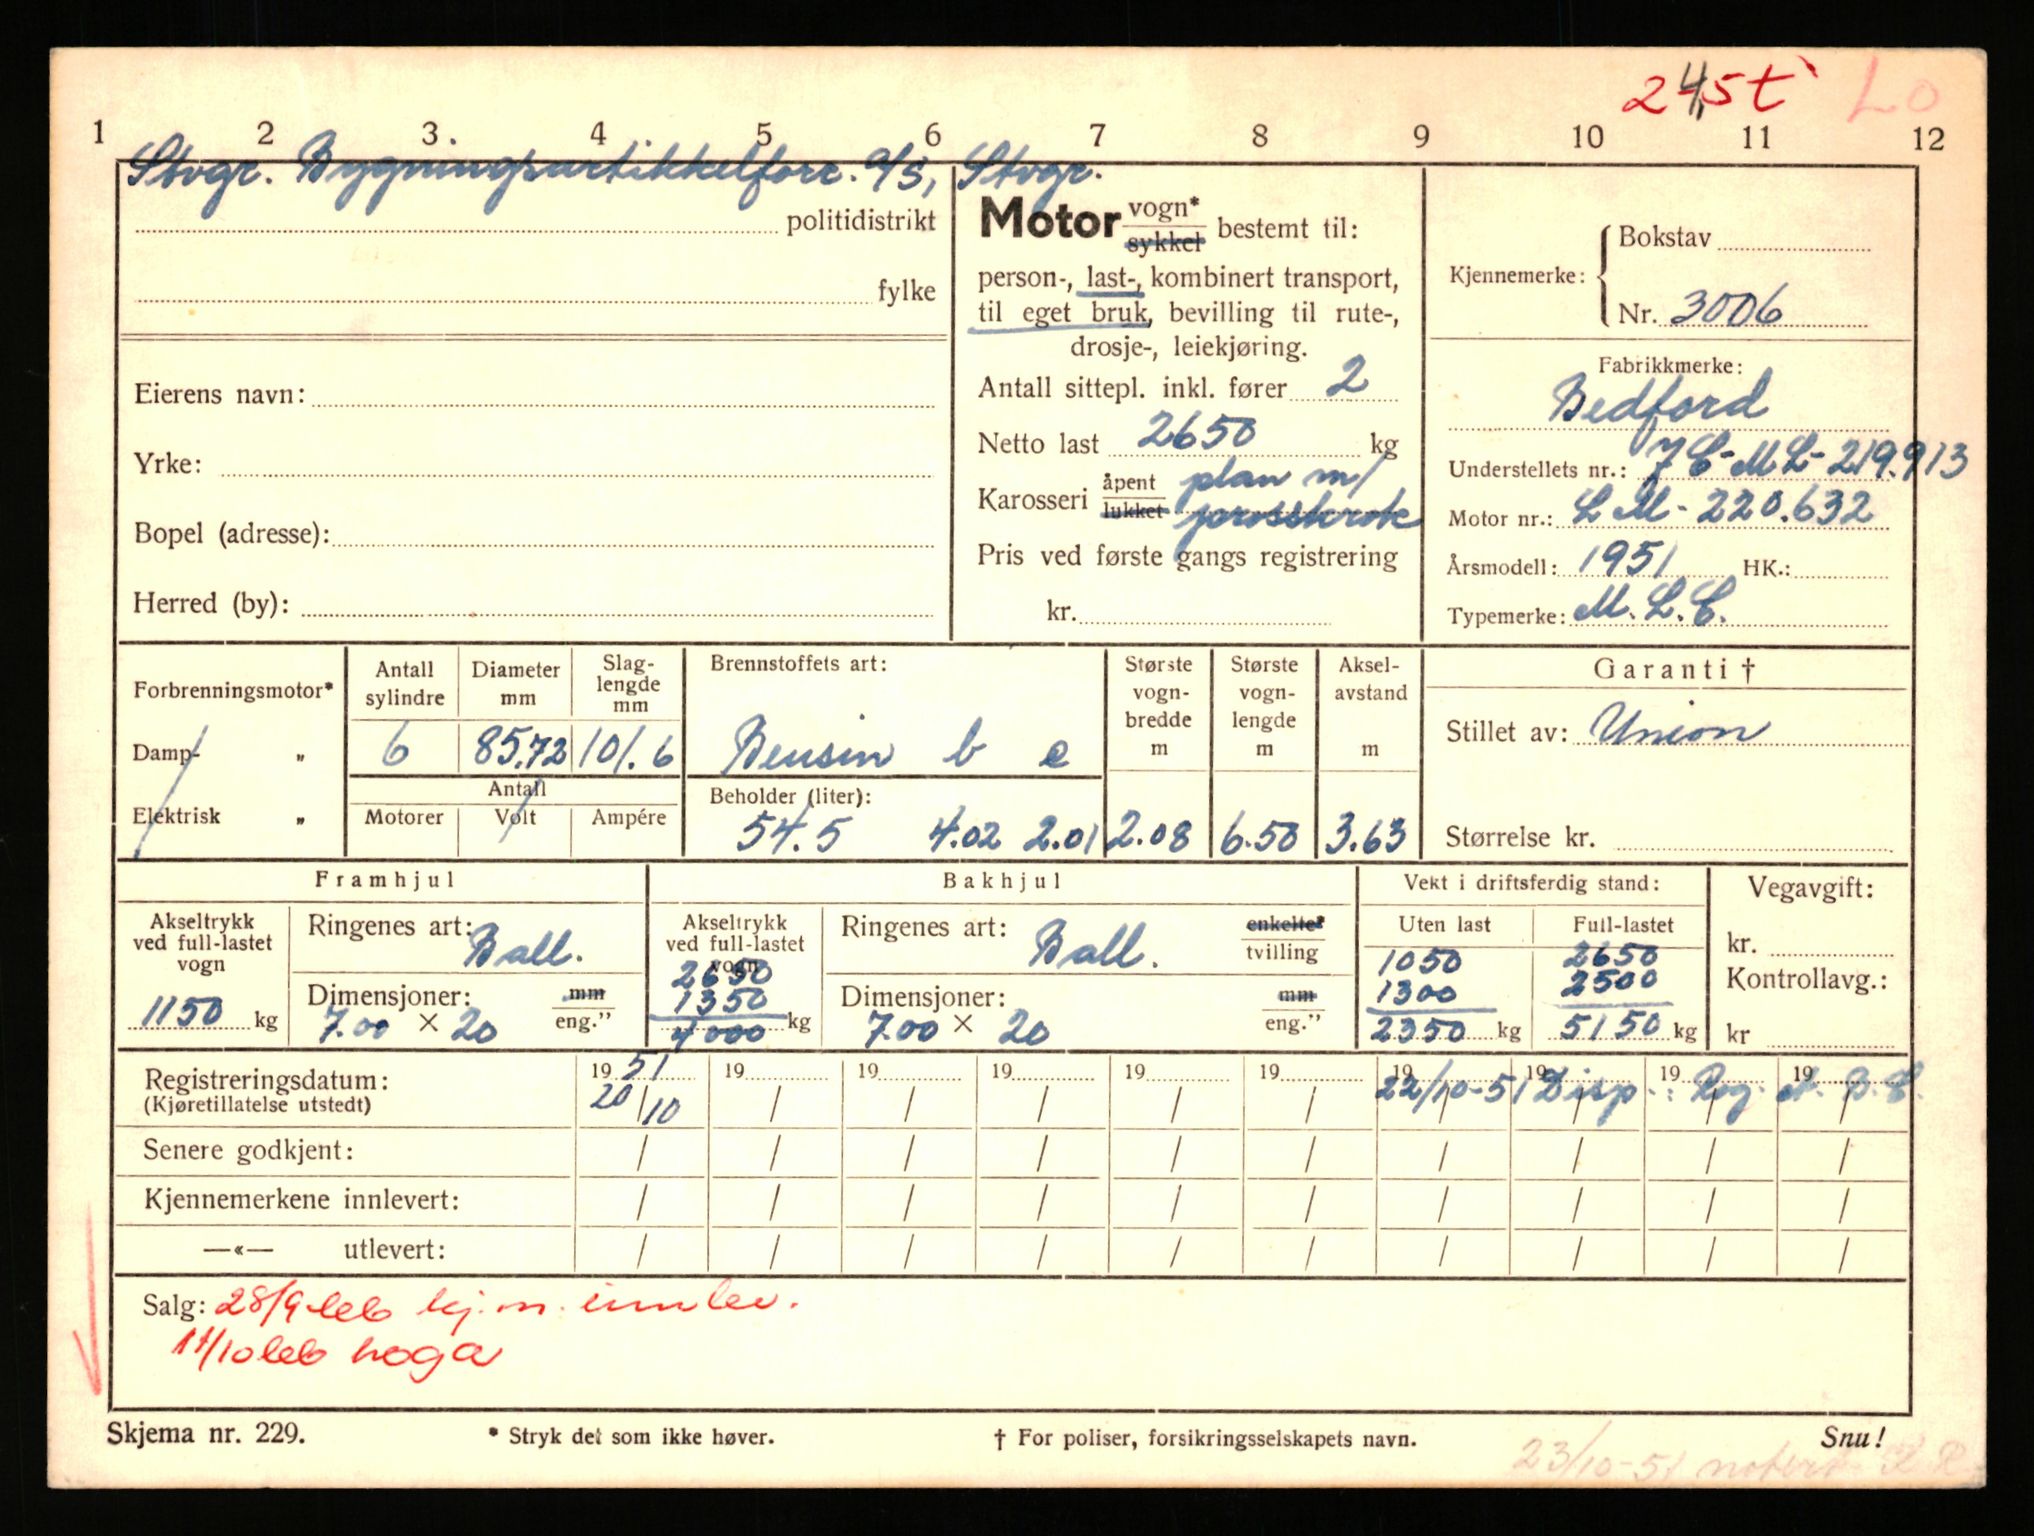 24,5t LO
1 2 3. 4 5 6 7 8 9 10 11 12
Stvgr. Bygningsartikkelforr. A/S, Stvgr.
politidistrikt
fylke
Eierens navn:
Yrke:
Bopel (adresse):
Herred (by):
Motor vogn* sykkel bestemt til:
person-, last-, kombinert transport,
til eget bruk, bevilling til rute-,
drosje-, leiekjøring.
Antall sittepl. inkl. fører 2
Netto last 2650 kg
Karosseri åpent lukket plan m/
Pris ved første gangs registrering
kr.
Kjennemerke: Bokstav
Nr. 3006
Fabrikkmerke:
Bedford
Understellets nr.: 7 C-ML-219.913
Motor nr.: LM-220.632
Årsmodell: 1951 HK.:
Typemerke: M.L.C.
Forbrenningsmotor*
Damp- "
Elektrisk "
Antall sylindre
6
Diameter mm
85.72
Slag-lengde mm
101.6
Antall
Motorer Volt Ampére
Brennstoffets art:
Bensin b e
Beholder (liter):
54.5 4.02 2.01
Største vogn-bredde m
2.08
Største vogn-lengde m
6.50
Aksel-avstand m
3.63
Garanti †
Stillet av: Union
Størrelse kr.
Framhjul
Akseltrykk
ved full-lastet
vogn
1150 kg
Ringenes art: Ball.
Dimensjoner: mm
7.00 × 20 eng."
Bakhjul
Akseltrykk
ved full-lastet
vogn
2650
1350
4000 kg
Ringenes art: Ball. enkelte* tvilling
Dimensjoner: mm
7.00 × 20 eng."
Vekt i driftsferdig stand:
Uten last Full-lastet
1050 2650
1300 2500
2350 kg 5150 kg
Vegavgift:
kr.
Kontrollavg.:
kr
Registreringsdatum: 19 51 19 19 19 19 19 19 19 19 19
(Kjøretillatelse utstedt) 20/10 / / / / / 22/10-51 Disp.: Reg. A. B. C.
Senere godkjent: / / / / / / / / / /
Kjennemerkene innlevert: / / / / / / / / / /
—«— utlevert: / / / / / / / / / /
Salg: 28/9-66 kj.m. innlev.
14/10 66 hoga
Skjema nr. 229. * Stryk det som ikke høver. † For poliser, forsikringsselskapets navn. Snu!
23/10-51 notert